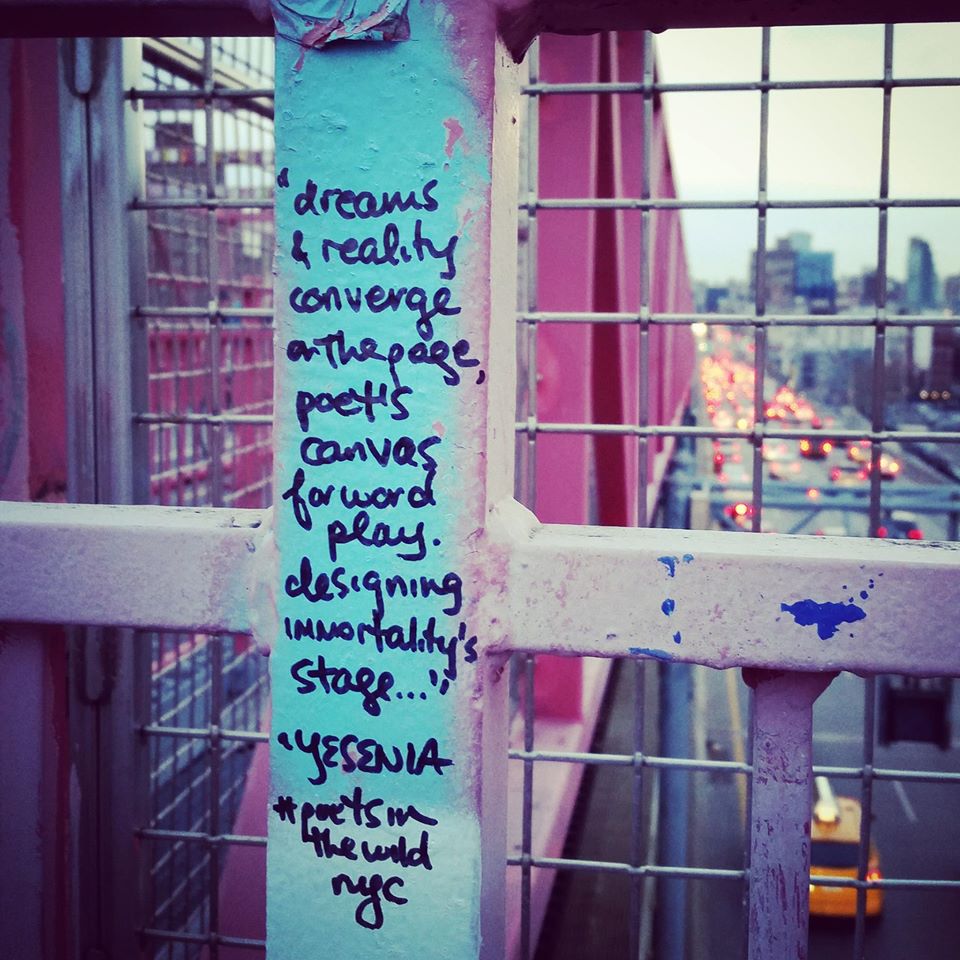 "dreams
& reality
converge
on the page,
poet's
canvas
for word
play.
designing
immortality's
stage..."
-YESENIA
#poetsin
thewild
nyc